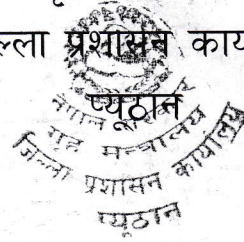 ल्ला प्रशासन कार्य
प्यूठान
नेपाल सरकार
गृह मन्त्रालय
जिल्ला प्रशासन कार्यालय
प्यूठान